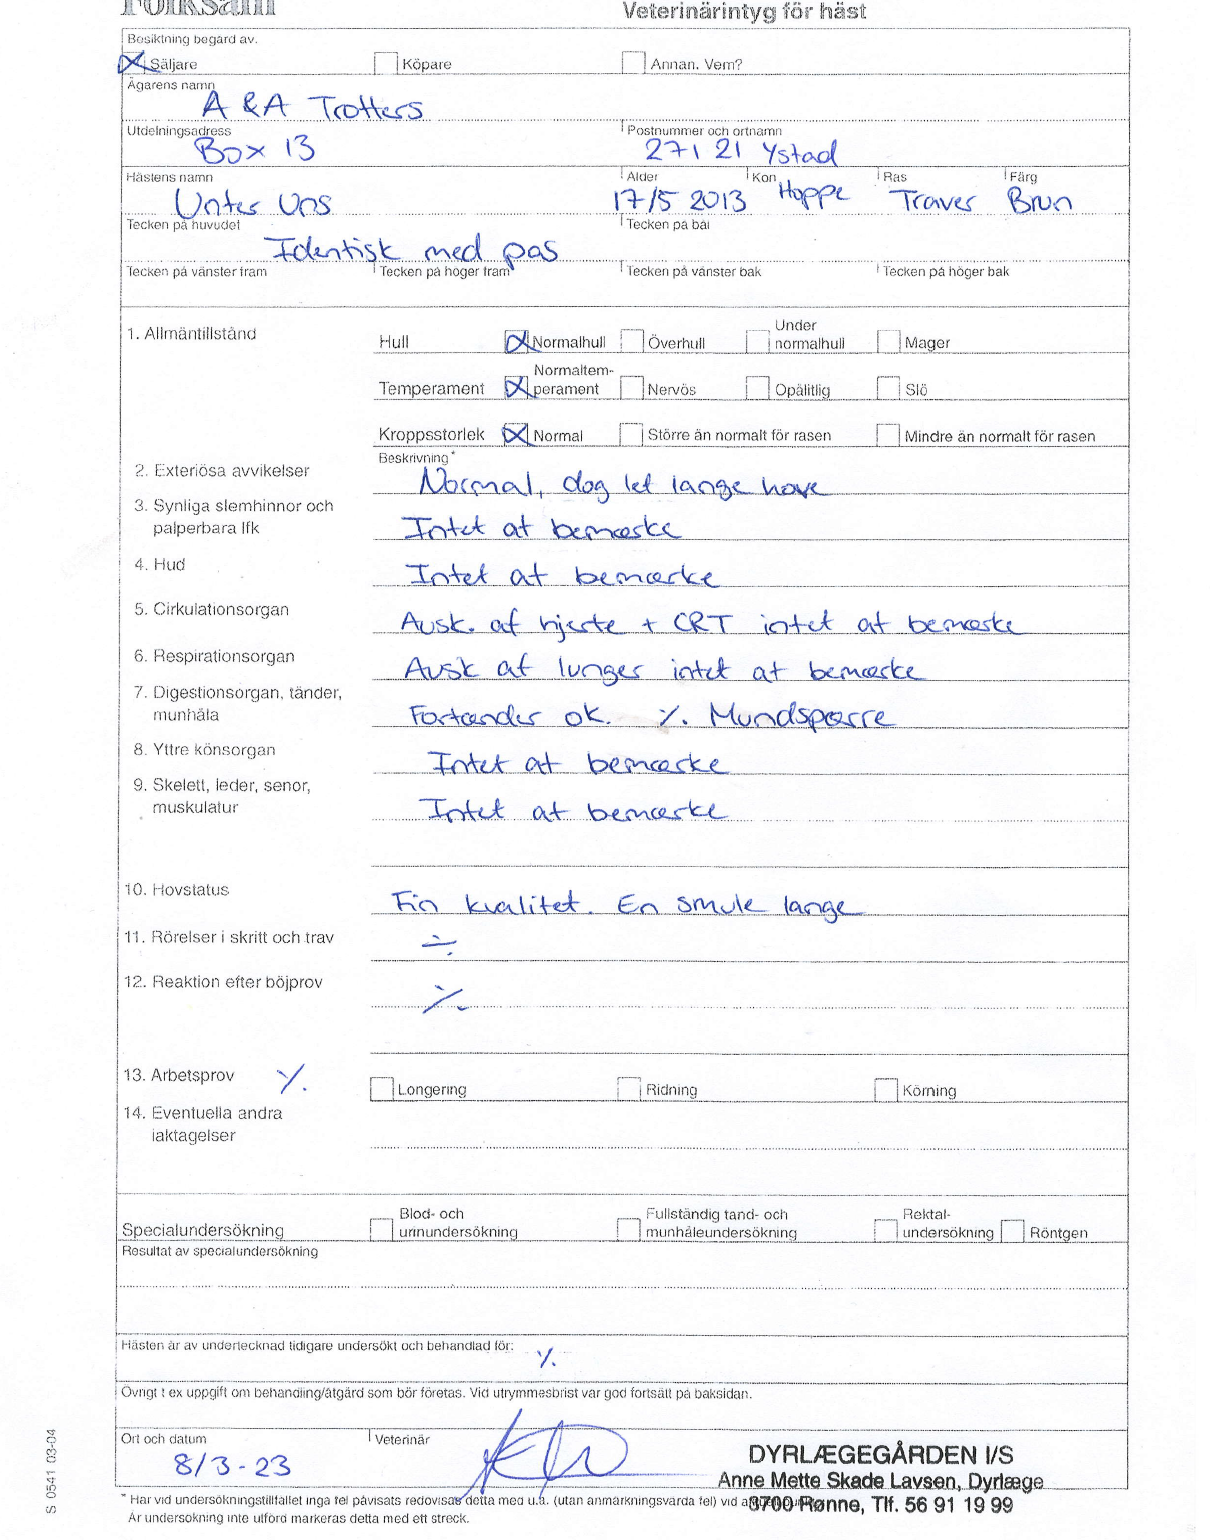 Folksam
Veterinärintyg för häst
Besiktning begärd av.
Säljare Köpare Annan. Vem?
Ägarens namn
A & A Trotters
Utdelningsadress Postnummer och ortnamn
Box 13 271 21 Ystad
Hästens namn Ålder Kön Ras Färg
Unter Uns 17/5 2013 Hoppe Traver Brun
Tecken på huvudet Tecken på bål
Identisk med pas
Tecken på vänster fram Tecken på höger fram Tecken på vänster bak Tecken på höger bak
1. Allmäntillstånd
Hull Normalhull Överhull Under normalhull Mager
Temperament Normaltem-
perament Nervös Opålitlig Slö
Kroppsstorlek Normal Större än normalt för rasen Mindre än normalt för rasen
Beskrivning*
2. Exteriösa avvikelser Normal, dog let lange hove
3. Synliga slemhinnor och
palperbara lfk Intet at bemærke
4. Hud Intet at bemærke
5. Cirkulationsorgan Ausk. af hjerte + CRT intet at bemærke
6. Respirationsorgan Ausk af lunger intet at bemærke
7. Digestionsorgan, tänder,
munhåla Fortænder ok. ./. Mundspærre
8. Yttre könsorgan Intet at bemærke
9. Skelett, leder, senor,
muskulatur Intet at bemærke
10. Hovstatus Fin kvalitet. En smule lange
11. Rörelser i skritt och trav ÷
12. Reaktion efter böjprov ./.
13. Arbetsprov ./. Longering Ridning Körning
14. Eventuella andra
iakttagelser
Specialundersökning Blod- och
urinundersökning Fullständig tand- och
munhåleundersökning Rektal-
undersökning Röntgen
Resultat av specialundersökning
Hästen är av undertecknad tidigare undersökt och behandlad för: ./.
Övrigt t ex uppgift om behandling/åtgärd som bör företas. Vid utrymmesbrist var god fortsätt på baksidan.
Ort och datum Veterinär
8/3-23
DYRLÆGEGÅRDEN I/S
Anne Mette Skade Lavsen, Dyrlæge
3700 Rønne, Tlf. 56 91 19 99
* Har vid undersökningstillfället inga fel påvisats redovisas detta med u.a. (utan anmärkningsvärda fel) vid
Är undersökning inte utförd markeras detta med ett streck.
S 0541 03-04